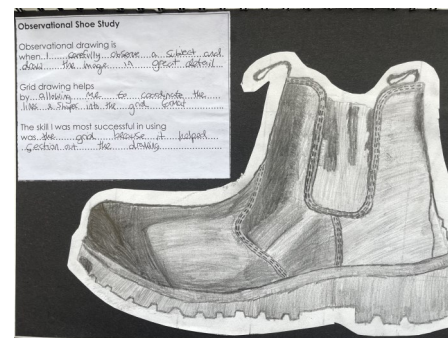 Observational Shoe Study
Observational drawing is
when I carefully observe a subject and
draw the image in great detail
Grid drawing helps
by allowing me to coordinate the
lines & shapes into the grid format
The skill I was most successful in using
was the grid because it helped
section out the drawing